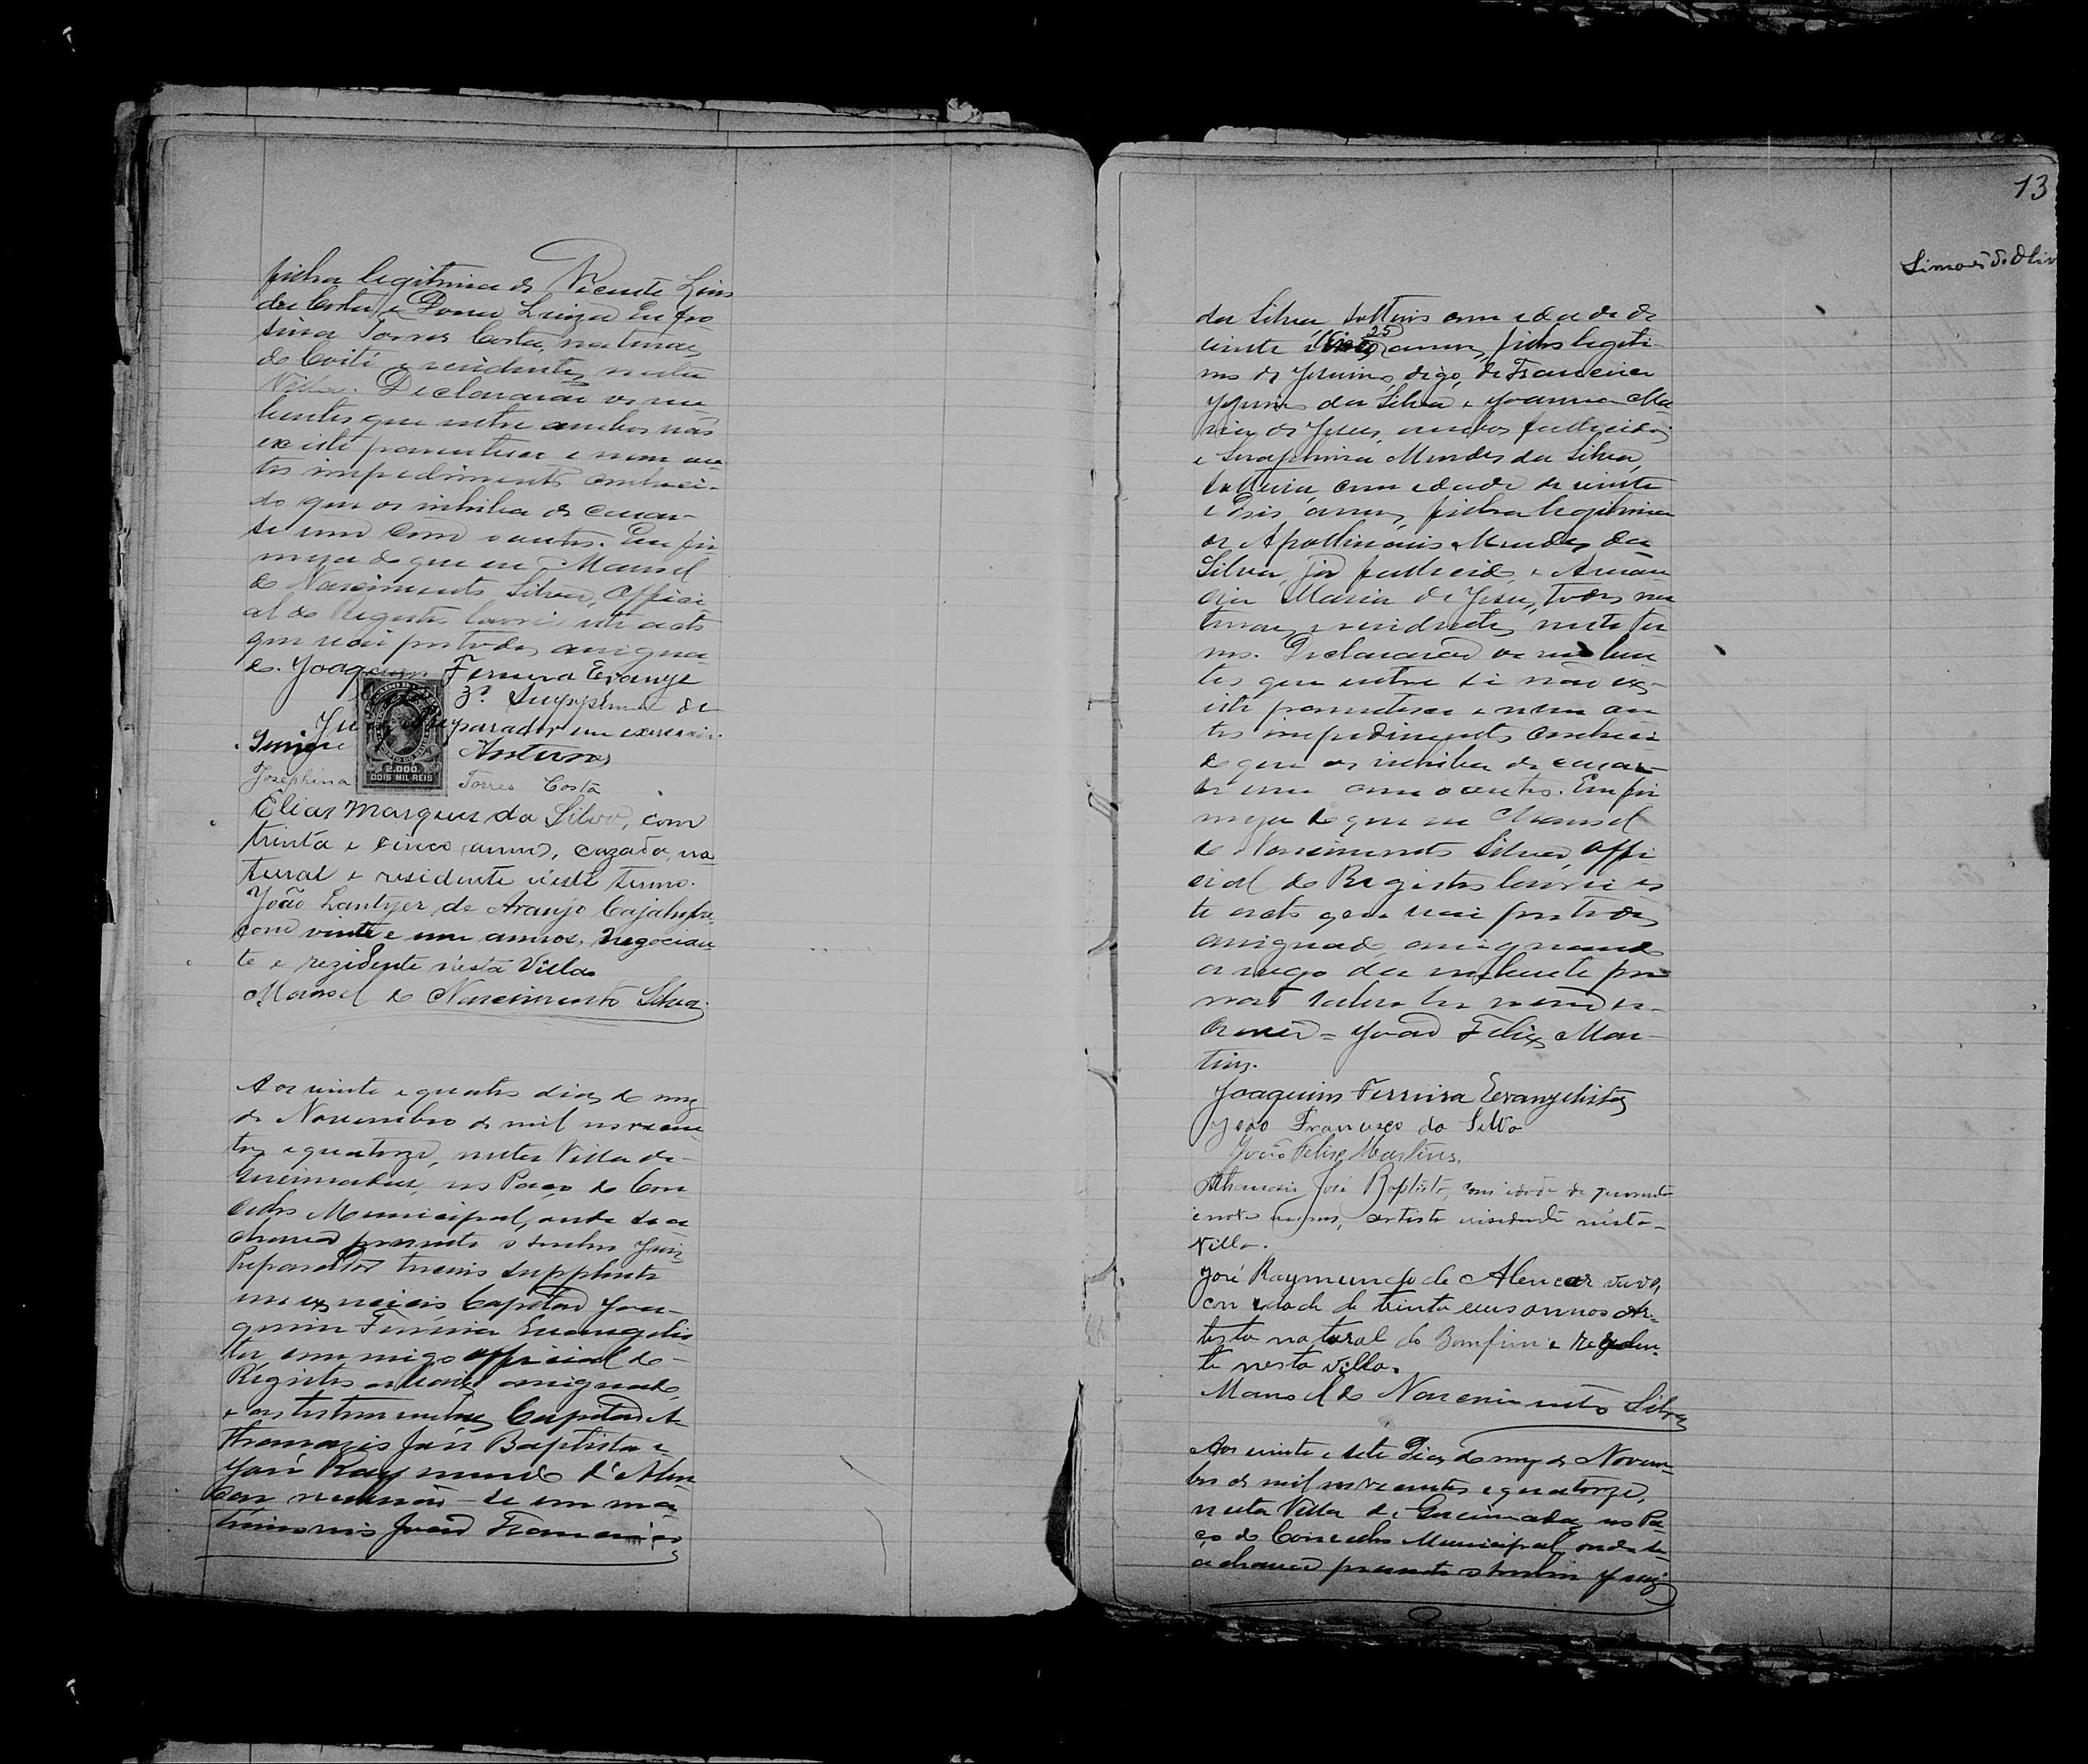 filha legitima de Vicente Lins
da Costa e Dona Luiza Eufro
sina Torres Costa, naturaes
de Coité e residentes nesta
Villa. Declararão os nu
bentes que entre ambos não
existe parentesco e nem ou
tro impedimento conheci-
do que os inhiba de casar-
se um com o outro. Em fir
meza do que eu Manoel
do Nascimento Silva, Offici
al do Registro lavrei este acto
que vai por todos assigna
do. Joaquim Ferreira Evange
3º Supplente de
Juiz Preparador em exercicio.
Antunes
2.000
DOIS MIL REIS
Josephina Torres Costa
Elias Marques da Silva, com
trinta e cinco annos, cazado, na
tural e residente n'este termo.
João Lantyer de Araujo Cajahyba,
com vinte e um annos, negocian
te e rezidente n'esta Villa
Manoel do Nascimento Silva.
Aos vinte e quatro dias do mez
de Novembro de mil novecen
tos e quatorze, nesta Villa de
Queimadas, no Paço do Con
celho Municipal, onde se a
chava presente o senhor Juiz
Preparador terceiro supplente
em exercicio Capitão Joa-
quim Ferreira Evangelis
ta, commigo official do
Registro abaixo assignado
e as testemunhas Capitão A-
thanazio José Baptista e
José Raymundo d'Alen
car receberão-se em ma
trimonio João Francisco
13
Simões de Oliv
da Silva solteiro com edade de
vinte e cinco 25 annos, filho legiti-
mo de Jesuino, digo, de Francisco
Jesuino da Silva e Joanna Ma-
ria de Jesus, ambos fallecidos
e Serafina Mendes da Silva,
solteira, com edade de vinte
e dois annos, filha legitima
de Apollinario Mendes da
Silva, já fallecido, e
Maria de Jesus, todos na
turaes e residentes neste ter
mo. Declararão os nuben
tes que entre si não ex-
iste parentesco e nem ou
tro impedimento conheci
do que os inhiba de casar-
se um com o outro. Em fir
meza do que eu Manoel
do Nascimento Silva, offi
cial do Registro lavrei es
te acto que vai por todos
assignado, assignando
a rogo da nubente por
não saber ler nem es-
crever = João Felix Mar-
tins.
Joaquim Ferreira Evangelista
João Francisco da Silva
João Felix Martins.
Athanasio José Baptista, com idade de quarenta
e nove annos, artista residente nesta-
Villa.
José Raymundo de Alencar
com idade de trinta annos Ar-
tista natural do Bomfim e reziden-
te nesta villa.
Manoel do Nascimento Silva
Aos vinte e sete dias do mez de Novem-
bro de mil novecentos e quatorze,
nesta Villa de Queimadas no Pa-
ço do Concelho Municipal onde se-
achava presente o senhor Juiz